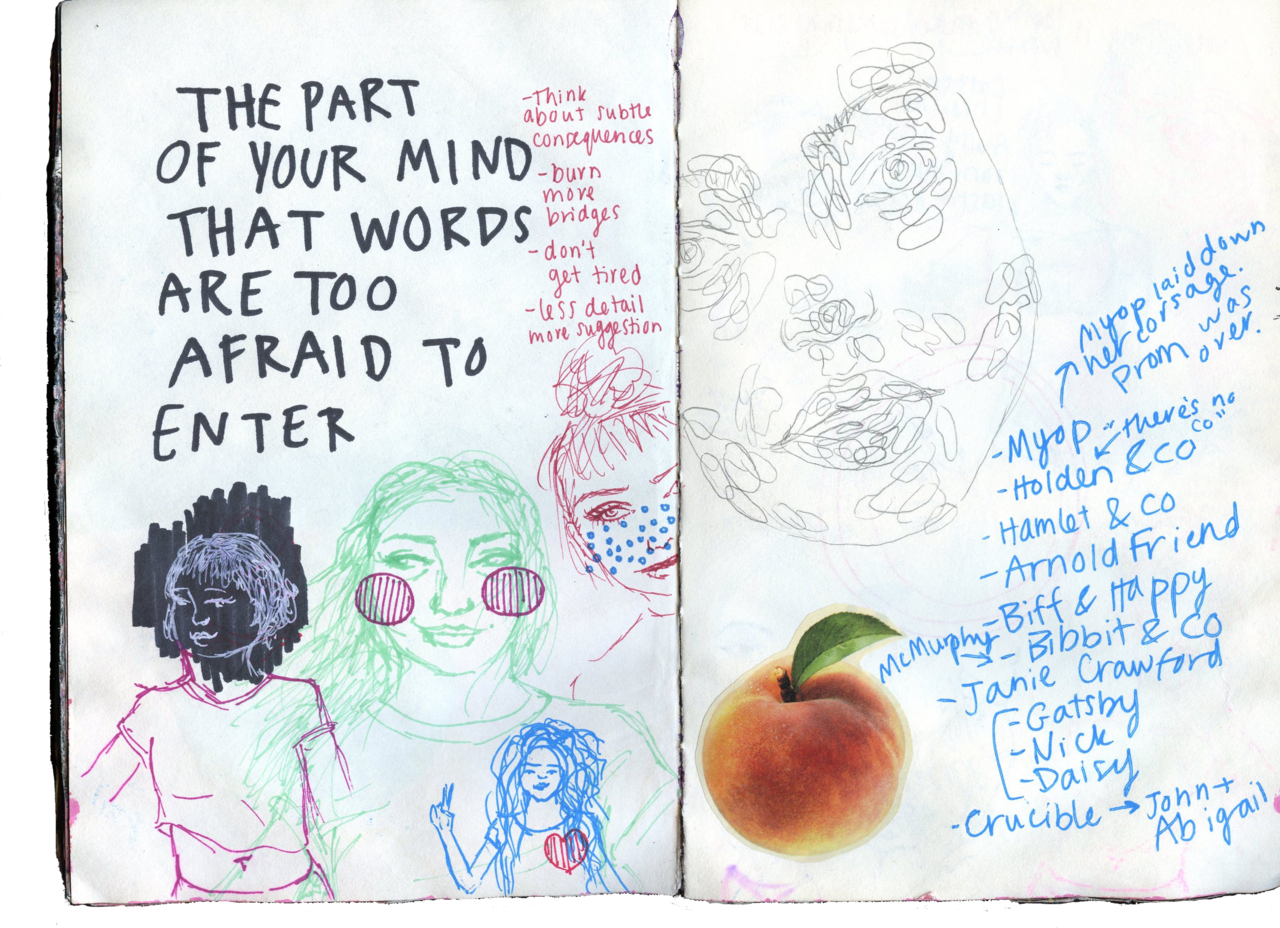 THE PART
OF YOUR MIND
THAT WORDS
ARE TOO
AFRAID TO
ENTER
-Think
about subtle
consequences
-burn
more
bridges
-don't
get tired
-less detail
more suggestion
Myop laid down
her corsage.
Prom was
over.
-Myop
"there's no
co"
-Holden & co
-Hamlet & Co
-Arnold Friend
-Biff & Happy
McMurphy
-Bibbit & Co
-Janie Crawford
-Gatsby
-Nick
-Daisy
-Crucible → John +
Abigail